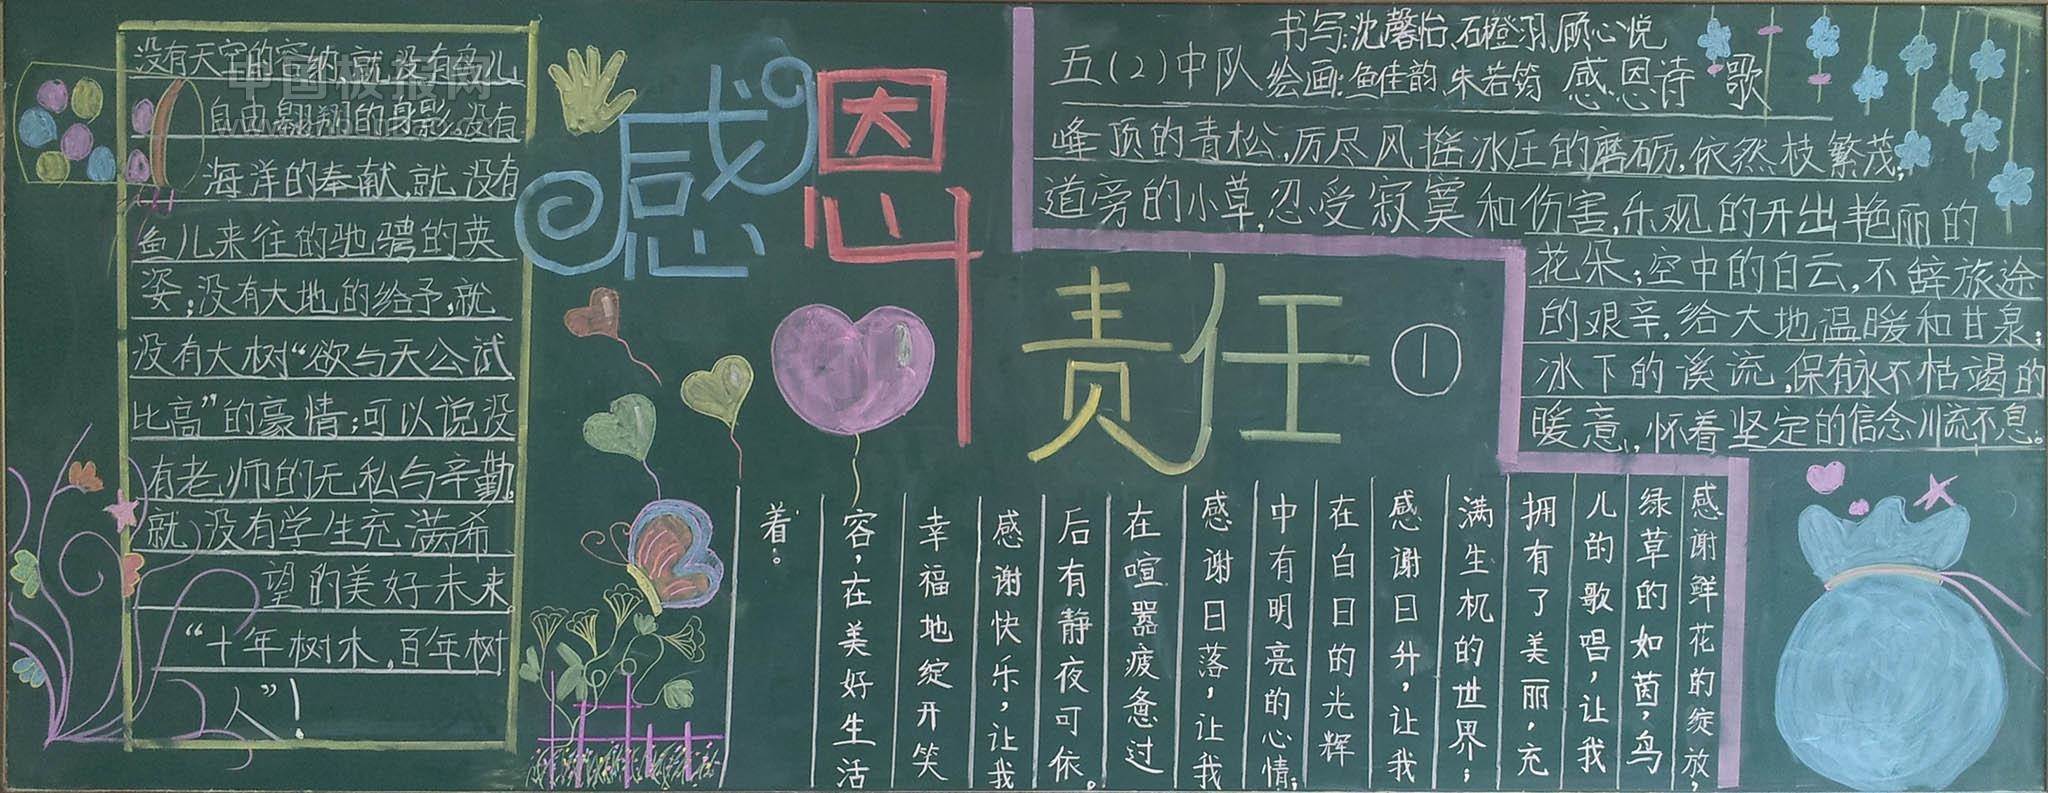 没有天空的容纳,就没有鸟儿
自由翱翔的身影。没有
海洋的奉献,就没有
鱼儿来往的驰骋的英
姿;没有大地的给予,就
没有大树“欲与天公试
比高”的豪情;可以说没
有老师的无私与辛勤,
就没有学生充满希
望的美好未来
“十年树木,百年树
人”!
中国板报网
感恩
责任
①
书写:沈馨怡、石橙羽、顾心悦
五(2)中队 绘画:鱼佳韵、朱若筠 感恩诗歌
峰顶的青松,厉尽风摇冰压的磨砺,依然枝繁茂;
道旁的小草,忍受寂寞和伤害,乐观的开出艳丽的
花朵;空中的白云,不辞旅途
的艰辛,给大地温暖和甘泉;
冰下的溪流,保有永不枯竭的
暖意,怀着坚定的信念川流不息。
感谢鲜花的绽放,
绿草的如茵,鸟
儿的歌唱,让我
拥有了美丽,充
满生机的世界;
感谢日升,让我
在白日的光辉
中有明亮的心情;
感谢日落,让我
在喧嚣疲惫过
后有静夜可依。
感谢快乐,让我
幸福地绽开笑
容,在美好生活
着。